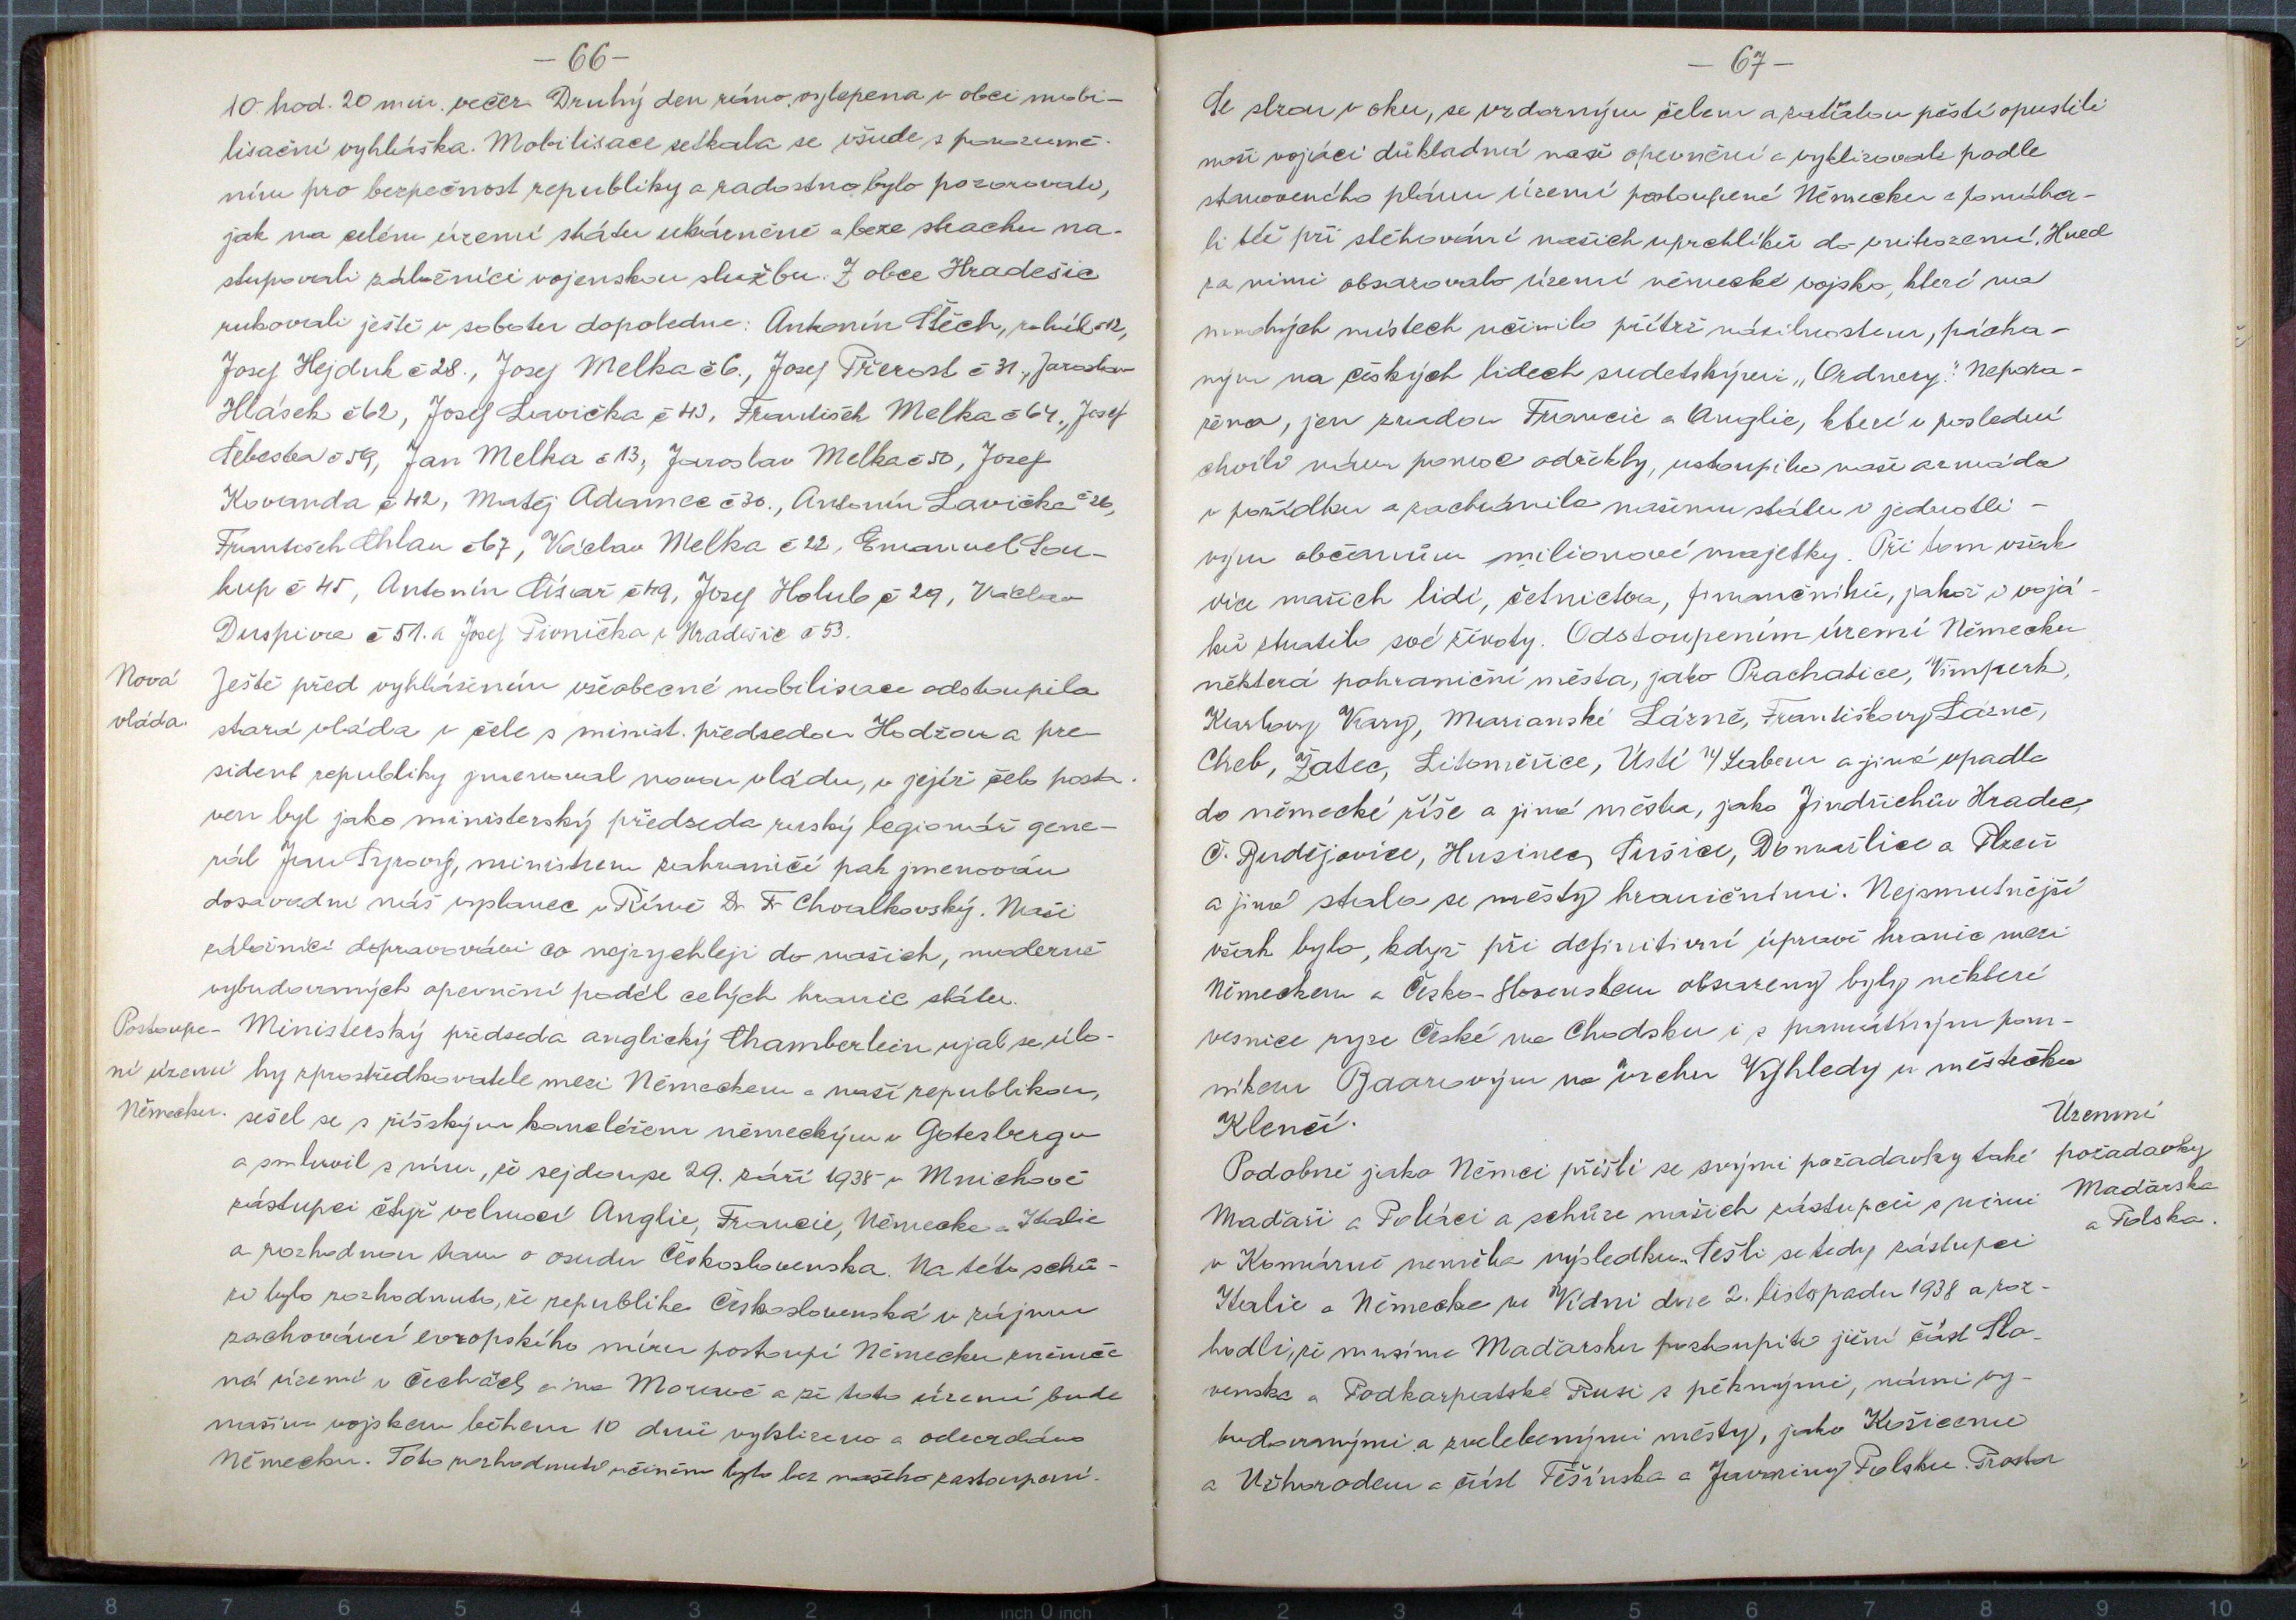 – 66 –
10. hod. 20 min. večer. Druhý den ráno vylepena v obci mobi-
lisační vyhláška. Mobilisace setkala se všude s porozumě-
ním pro bezpečnost republiky a radostno bylo pozorovati,
jak na celém území státu ukázněně a beze strachu na-
stupovali záložníci vojenskou službu. Z obce Hradešic
rukovali ještě v sobotu dopoledne: Antonín Štěch, rolník č 12,
Josef Hejduk č 28., Josef Melka č 6., Josef Přerost č 31., Jaroslav
Hlásek č 62, Josef Lavička č 43, František Melka č 64., Josef
Šebesta č 59, Jan Melka č 13, Jaroslav Melka č 50, Josef
Kovanda č 42, Matěj Adamec č 30., Antonín Lavička č 26,
František Chlan č 67, Václav Melka č 22, Emanuel Sou-
kup č 45, Antonín Císař č 49, Josef Holub č 29, Václav
Duspiva č 51. a Josef Pivnička z Hradešic č 53.
Nová
vláda.
Ještě před vyhlášením všeobecné mobilisace odstoupila
stará vláda v čele s minist. předsedou Hodžou a pre-
sident republiky jmenoval novou vládu, v jejíž čelo posta-
ven byl jako ministerský předseda ruský legionář gene-
rál Jan Syrový, ministrem zahraničí pak jmenován
dosavadní náš vyslanec v Římě Dr Fr Chvalkovský. Naši
záložníci dopravováni co nejrychleji do našich, moderně
vybudovaných opevnění podél celých hranic státu.
Postoupe-
ní území
Německu.
Ministerský předseda anglický Chamberlein ujal se úlo-
hy zprostředkovatele mezi Německem a naší republikou,
sešel se s říšským kancléřem německým v Gotesbergu
a smluvil s ním, že sejdou se 29. září 1938 v Mnichově
zástupci čtyř velmocí Anglie, Francie, Německa a Italie
a rozhodnou tam o osudu Československa. Na této schů-
zi bylo rozhodnuto, že republika Československá v zájmu
zachování evropského míru postoupí Německu zněmče
ná území v Čechách a na Moravě a že toto území bude
naším vojskem během 10 dnů vyklizeno a odevzdáno
Německu. Toto rozhodnutí učiněno bylo bez našeho zastoupení.
– 67 –
Se slzou v oku, se vzdorným čelem a zaťatou pěstí opustili
naši vojáci důkladná naše opevnění a vyklizovali podle
stanoveného plánu území postoupené Německu a pomáha-
li též při stěhování našich uprchlíků do vnitrozemí. Hned
za nimi obsazovalo území německé vojsko, které na
mnohých místech učinilo přítrž násilnostem, pácha-
ným na českých lidech sudetskými „Ordnery.“ Nepora-
žena, jen zradou Francie a Anglie, které v poslední
chvíli nám pomoc odřekly, ustoupila naše armáda
v pořádku a zachránila našemu státu i jednotli-
vým občanům milionové majetky. Při tom však
více našich lidí, četnictva, finančníků, jakož i vojá-
ků ztratilo své životy. Odstoupením území Německu
některá pohraniční města, jako Prachatice, Vimperk,
Karlovy Vary, Marianské Lázně, Františkovy Lázně,
Cheb, Žatec, Litoměřice, Ústí n/ Labem a jiná upadla
do německé říše a jiná města, jako Jindřichův Hradec,
Č. Budějovice, Husinec, Sušice, Domažlice a Plzeň
a jiná stala se městy hraničními. Nejsmutnější
však bylo, když při definitivní úpravě hranic mezi
Německem a Česko-Slovenskem obsazeny byly některé
vesnice ryze české na Chodsku i s památným pom-
níkem Baarovým na vrchu Výhledy u městečka
Klenčí.
Územní
požadavky
Maďarska
a Polska.
Podobně jako Němci přišli se svými požadavky také
Maďaři a Poláci a schůze našich zástupců s nimi
v Komárně neměla výsledku. Sešli se tedy zástupci
Italie a Německa ve Vídni dne 2. listopadu 1938 a roz-
hodli, že musíme Maďarsku postoupiti jižní část Slo-
venska a Podkarpatské Rusi s pěknými, námi vy-
budovanými a zvelebenými městy, jako Košicemi
a Užhorodem a část Těšínska a Javoriny Polsku. Prosta